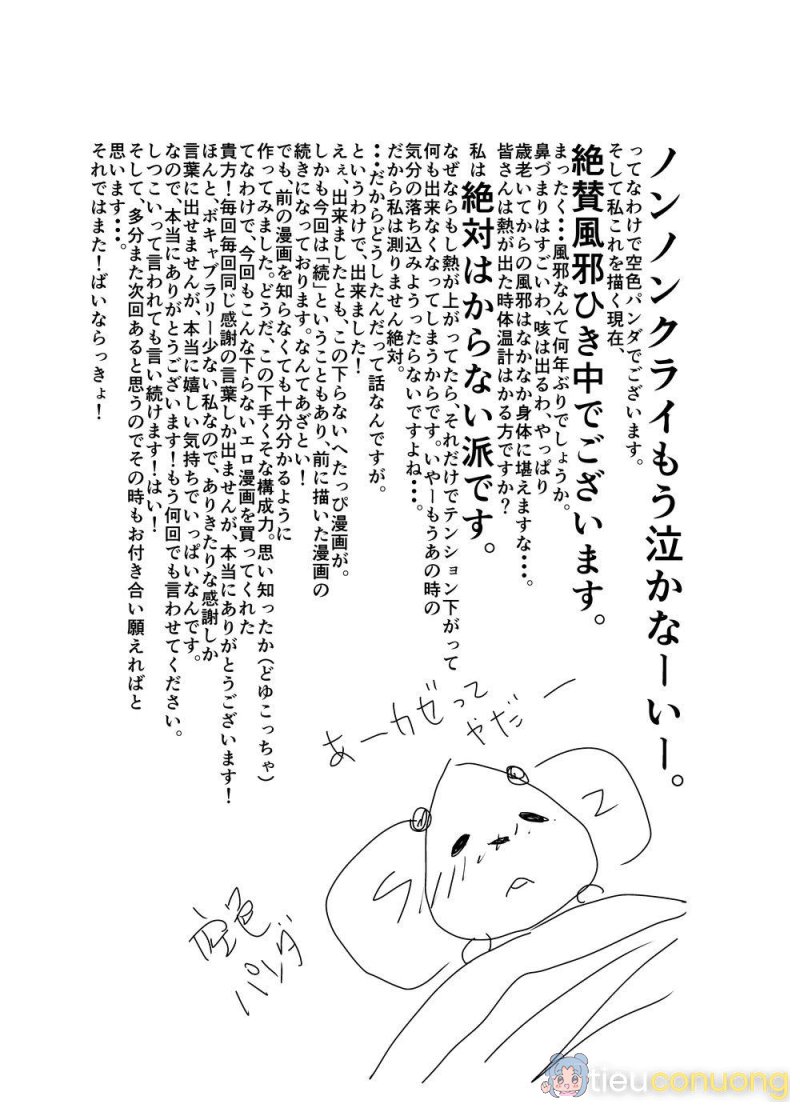 ノンノンクライもう泣かなーいー。
ってなわけで空色パンダでございます。
そして私これを描く現在、
絶賛風邪ひき中でございます。
まったく･･･風邪なんて何年ぶりでしょうか。
鼻づまりはすごいわ、咳は出るわ、やっぱり
歳老いてからの風邪はなかなか身体に堪えますな･･･。
皆さんは熱が出た時体温計はかる方ですか？
私は絶対はからない派です。
なぜならもし熱が上がってたら、それだけでテンション下がって
何も出来なくなってしまうからです。いやーもうあの時の
気分の落ち込みようったらないですよね･･･。
だから私は測りません絶対。
･･･だからどうしたんだって話なんですが。
というわけで、出来ました！
えぇ、出来ましたとも、この下らないへたっぴ漫画が。
しかも今回は「続」ということもあり、前に描いた漫画の
続きになっております。なんてあざとい！
でも、前の漫画を知らなくても十分分かるように
作ってみました。どうだ、この下手くそな構成力。思い知ったか（どゆこっちゃ）
てなわけで、今回もこんな下らないエロ漫画を買ってくれた
貴方！毎回毎回同じ感謝の言葉しか出ませんが、本当にありがとうございます！
ほんと、ボキャブラリー少ない私なので、ありきたりな感謝しか
言葉に出せませんが、本当に嬉しい気持ちでいっぱいなんです。
なので、本当にありがとうございます！もう何回でも言わせてください。
しつこいって言われても言い続けます！はい！
そして、多分また次回あると思うのでその時もお付き合い願えればと
思います･･･。
それではまた！ばいならっきょ！
あーカゼって
やだー
空色
パンダ
tieuconuong